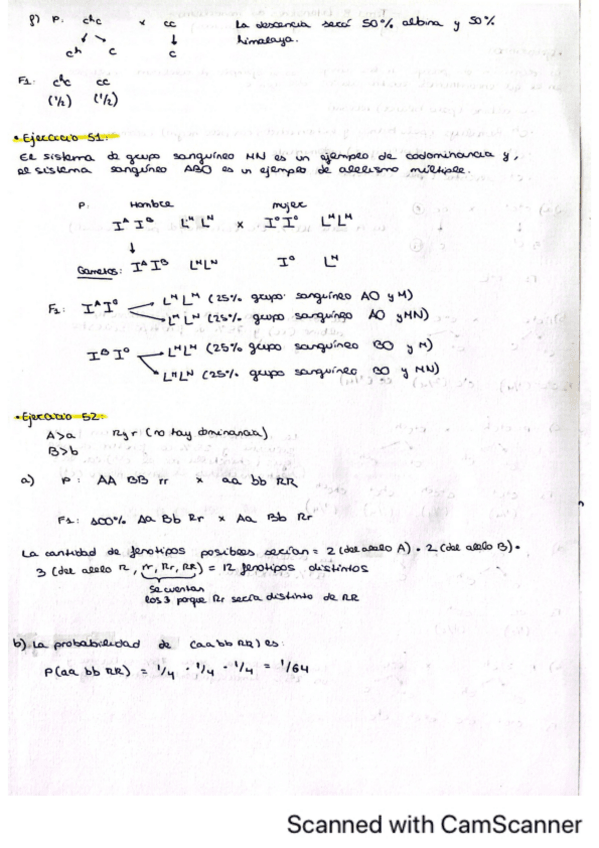 f) P: cʰc x cc La descencia será 50% albina y 50%
himalaya.
cʰ c c
F1: cʰc cc
(1/2) (1/2)
• Ejercicio 51:
El sistema de grupo sanguíneo MN es un ejemplo de codominancia y,
el sistema sanguíneo ABO es un ejemplo de alelismo múltiple.
P: Hombre mujer
Iᴬ Iᴮ Lᴹ Lᴺ x I⁰ I⁰ Lᴹ Lᴹ
Gametos: Iᴬ Iᴮ Lᴹ Lᴺ I⁰ Lᴹ
F1: Iᴬ I⁰ Lᴹ Lᴹ (25% grupo sanguíneo AO y M)
Lᴹ Lᴺ (25% grupo sanguíneo AO y MN)
Iᴮ I⁰ Lᴹ Lᴹ (25% grupo sanguíneo BO y M)
Lᴹ Lᴺ (25% grupo sanguíneo BO y MN)
• Ejercicio 52:
A>a R y r (no hay dominancia)
B>b
a) P: AA BB rr x aa bb RR
F1: 100% Aa Bb Rr x Aa Bb Rr
La cantidad de fenotipos posibles serían = 2 (del alelo A) · 2 (del alelo B) ·
3 (del alelo R, rr, Rr, RR) = 12 fenotipos distintos
se cuentan
los 3 porque Rr sería distinto de RR
b) La probabilidad de (aa bb RR) es:
P(aa bb RR) = 1/4 · 1/4 · 1/4 = 1/64
Scanned with CamScanner